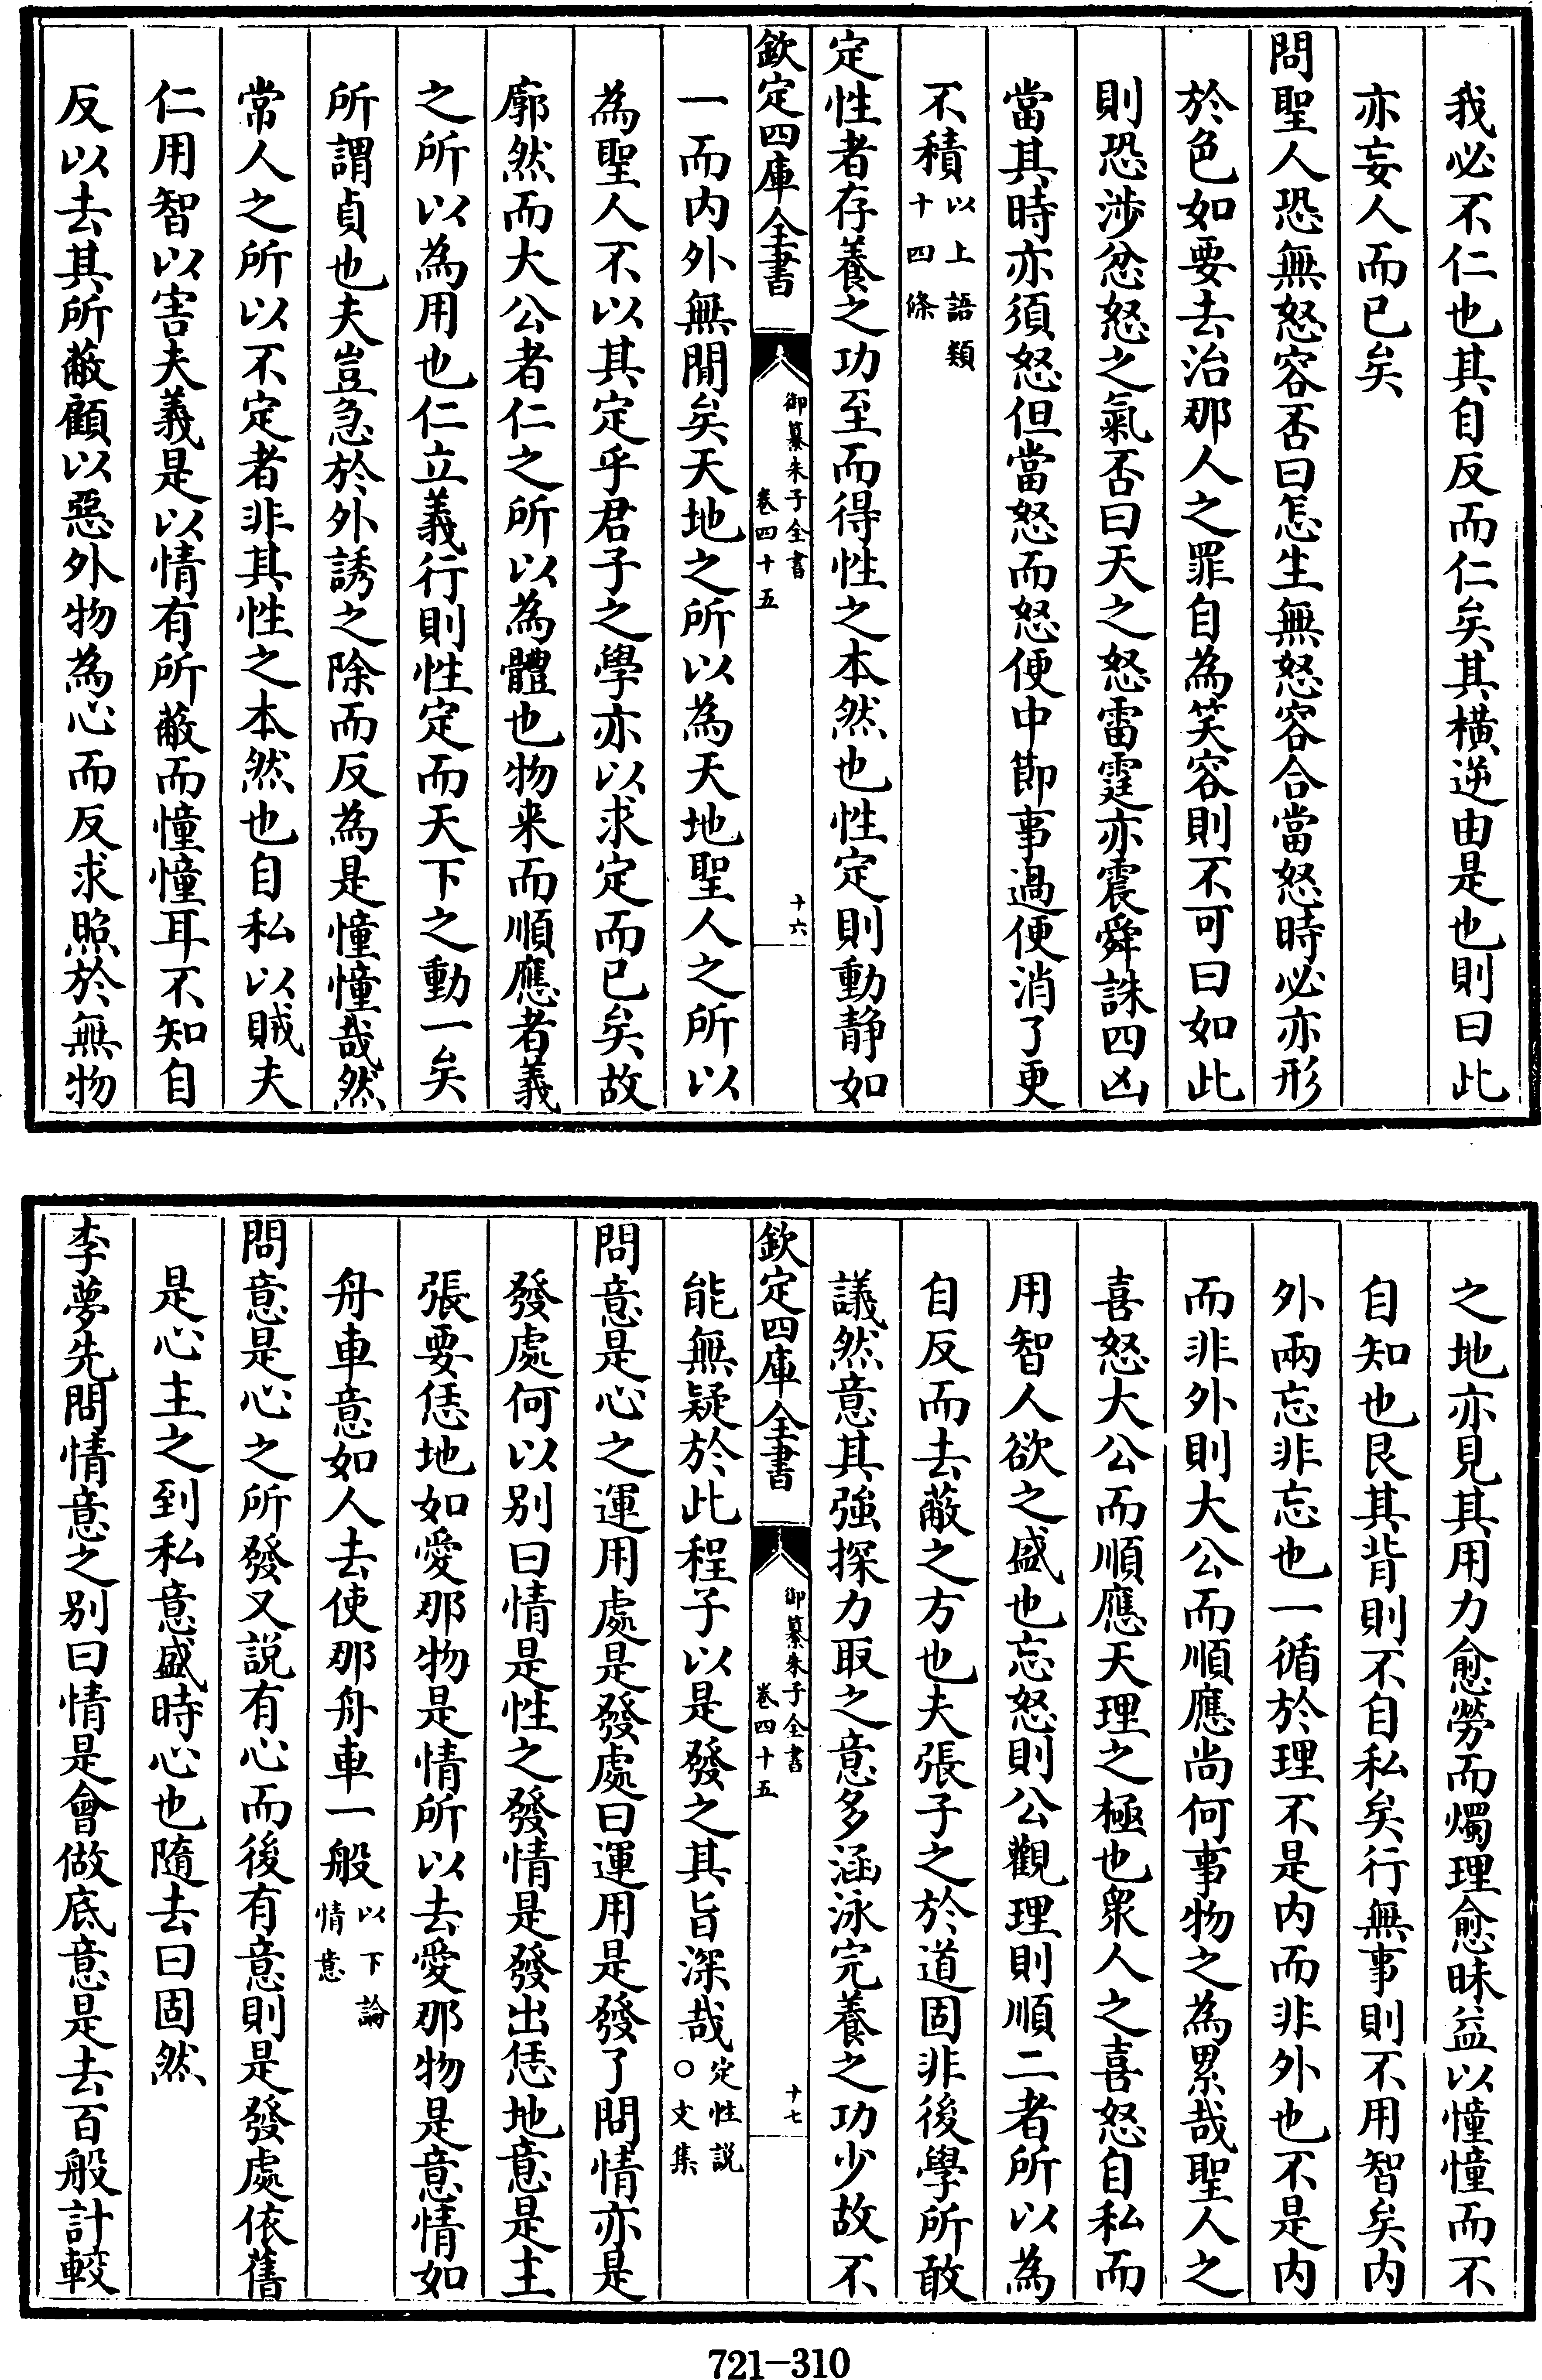 我必不仁也其自反而仁矣其橫逆由是也則曰此
亦妄人而已矣
問聖人恐無怒容否曰怎生無怒容合當怒時必亦形
於色如要去治那人之罪自為笑容則不可曰如此
則恐涉忿怒之氣否曰天之怒雷霆亦震舜誅四凶
當其時亦須怒但當怒而怒便中節事過便消了更
不積以上語類十四條
定性者存養之功至而得性之本然也性定則動静如
欽定四庫全書
御纂朱子全書
卷四十五
十六
一而内外無閒矣天地之所以為天地聖人之所以
為聖人不以其定乎君子之學亦以求定而已矣故
廓然而大公者仁之所以為體也物來而順應者義
之所以為用也仁立義行則性定而天下之動一矣
所謂貞也夫豈急於外誘之除而反為是憧憧哉然
常人之所以不定者非其性之本然也自私以賊夫
仁用智以害夫義是以情有所蔽而憧憧耳不知自
反以去其所蔽顧以惡外物為心而反求照於無物
之地亦見其用力愈勞而燭理愈昧益以憧憧而不
自知也艮其背則不自私矣行無事則不用智矣内
外兩忘非忘也一循於理不是内而非外也不是内
而非外則大公而順應尚何事物之為累哉聖人之
喜怒大公而順應天理之極也衆人之喜怒自私而
用智人欲之盛也忘怒則公觀理則順二者所以為
自反而去蔽之方也夫張子之於道固非後學所敢
議然意其強探力取之意多涵泳完養之功少故不
欽定四庫全書
御纂朱子全書
卷四十五
十七
能無疑於此程子以是發之其旨深哉定性説○文集
問意是心之運用處是發處曰運用是發了問情亦是
發處何以别曰情是性之發情是發出恁地意是主
張要恁地如愛那物是情所以去愛那物是意情如
舟車意如人去使那舟車一般以下論情意
問意是心之所發又説有心而後有意則是發處依舊
是心主之到私意盛時心也隨去曰固然
李夢先問情意之别曰情是會做底意是去百般計較
721-310